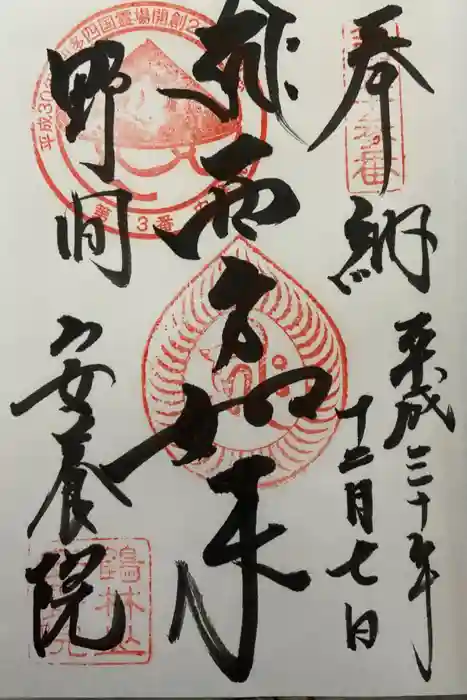 奉納
平成三十年
十二月七日
西方如来
野間
安養院
平成30年 知多四国霊場開創2
鶴林山